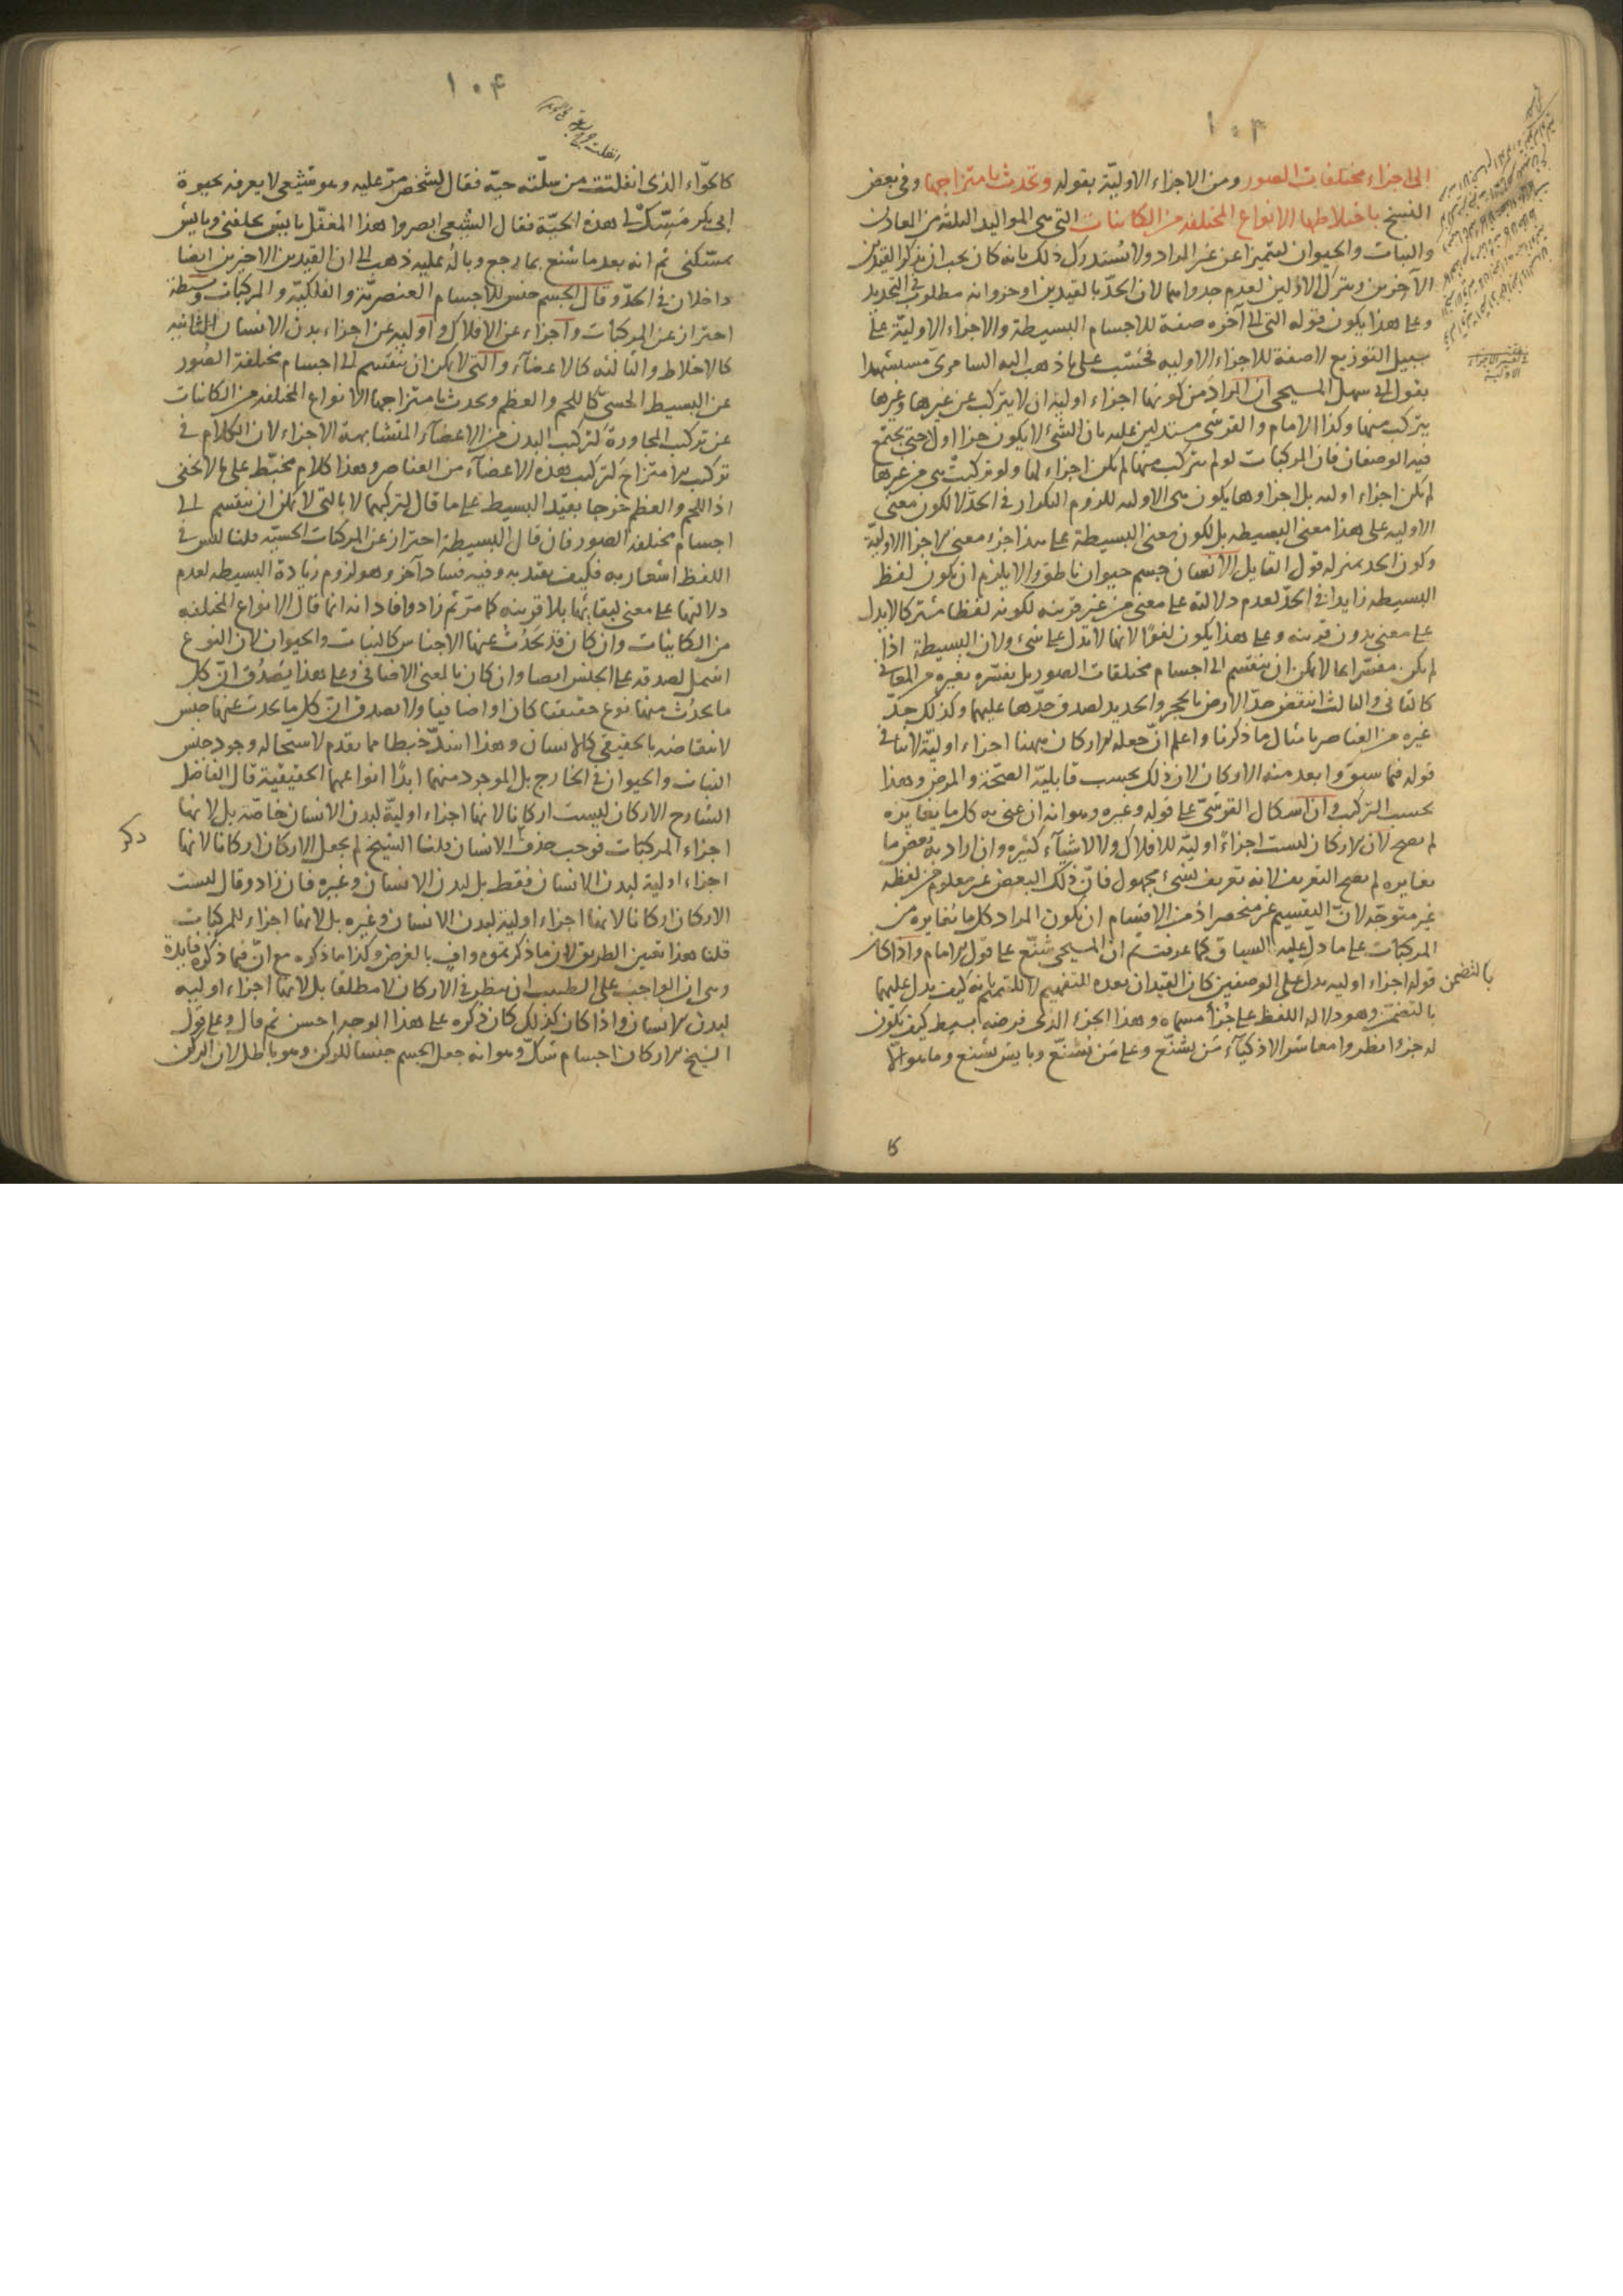 ١٠٣
الى اجزاء مختلفات الصور ومن الاجزاء الاولية بقوله وتحدث بامتزاجها وفى بعض
النسخ باختلاطها الانواع المختلفه من الكاينات التى هى المواليد الثلثة من المعادن
والنبات والحيوان ليتميزا عن غير المراد ولا يستدرك ذلك بانه كان يجب ان يذكر القيدين
الآخرين ويترك الاولين لعدم جدواهما لان الحد بالقيدين اوجز وانه مطلوب فى التحديد
وعلى هذا يكون قوله التى الى آخره صفة للاجسام البسيطة والاجزاء الاولية على
سبيل التوزيع لا صفة للاجزاء الاوليه فحسب على ما ذهب اليه السامرى مستشهدا
بقول ابى سهل المسيحى ان المراد من كونها اجزاء اولية ان لا يتركب عن غيرها وغيرها
يتركب منها وكذا الامام والقرشى مستدلين عليه بان الشئ لا يكون جزا اولا حتى يجتمع
فيه الوصفان فان المركبات لو لم يتركب منها لم يكن اجزاء لها ولو تركبت هى من غيرها
لم يكن اجزاء اوليه بل اجزاوها يكون هى الاوليه للزوم التكرار فى الحد لا لكون معنى
الاوليه على هذا معنى البسيطه بل لكون معنى البسيطة على هذا جزء معنى الاجزا الاولية
وكون الحد بمنزله قول القايل الانسان جسم حيوان ناطق والا يلزم ان يكون لفظ
البسيطه زايدا فى الحد لعدم دلالته على معنى من غير قرينه لكونه لفظا مشتركا لا يدل
على معنى بدون قرينه وعلى هذا يكون لغوا لانها لا تدل على شئ ولان البسيطة اذا
لم يكن مفسرا بما لا يمكن ان ينقسم الى اجسام مختلفات الصور بل يفسره بغيره من المعانى
كالثانى والثالث انتقض حد الارض بالحجر والحديد لصدق حدها عليهما وكذلك حد
غيره من العناصر بامثال ما ذكرنا واعلم ان جعله الاركان ههنا اجزاء اولية لا ينافى
قوله فيما سبق وابعد منه الاركان لان ذلك بحسب قابلية الصحة والمرض وهذا
بحسب التركيب وان اشكال القرشى على قوله وغيره وهو انه ان عنى به كل ما يغايره
لم يصح لان الاركان ليست اجزاء اولية للافلاك ولا لاشيآء كثيره وان اراد به بعض ما
يغايره لم يصح التعريف لانه تعريف بشئ مجهول فان ذلك البعض غير معلوم من لفظه
غير متوجه لان التقسيم غير منحصر اذ من الاقسام ان يكون المراد كل ما يغايره من
المركبات على ما دل عليه السياق كما عرفت ثم ان المسيحى شنع على قول الامام واذا كان
قوله اجزاء اوليه يدل على الوصفين كان القيدان بعده للتفهيم لا للتتميم بانه كيف يدل عليهما
بالتضمن
بالتضمن وهو دلاله اللفظ على جزأ مسماه وهذا الجزء الذى فرضه بسيط كيف يكون
له جزوا نظروا معاشر الاذكيآء من يشنع وعلى من يشنع وبايش يشنع وما هو الا
١٠٤
كالحواء الذى انفلتت من سلته حية فقال لشخص مر عليه وهو شيعى لا يعرفه بحيوة
ابى بكر مسك لى هذه الحية فقال الشيعى ابصروا هذا المغفل بايش يحلفنى وبايش
يمسكنى ثم انه بعد ما شنع بما رجع وباله عليه ذهب الى ان القيدين الاخرين ايضا
داخلان فى الحد وقال الجسم جنس للاجسام العنصرية والفلكية والمركبات وبسيطة
احتراز عن المركبات واجزاء عن الافلاك واوليه عن اجزاء بدن الانسان الثانيه
كالاخلاط والثالثه كالاعضآء والتى لا يمكن ان ينقسم الى اجسام مختلفة الصور
عن البسيط الحسى كاللحم والعظم وتحدث بامتزاجها الانواع المختلفه من الكاينات
عن تركب المجاورة لتركب البدن من الاعضآء المتشابهة الاجزاء لان الكلام فى
تركب الامتزاج كتركب هذه الاعضآء من العناصر وهذا كلام مخبط على ما لا يخفى
اذ اللحم والعظم خرجا بقيد البسيط على ما قال لتركبهما لا بالتى لا يمكن ان ينقسم الى
اجسام مختلفة الصور فان قال البسيطة احتراز عن المركبات الحسية قلنا ليس فى
اللفظ اشعار به فكيف يعتد به وفيه فساد آخر وهو لزوم زيادة البسيطه لعدم
دلالتها على معنى لبقائها بلا قرينه كما مر ثم زاد وافاد انه انما قال الانواع المختلفه
من الكاينات وان كان قد تحدث عنها الاجناس كالنبات والحيوان لان النوع
اشمل لصدقه على الجنس ايضا وان كان بالمعنى الاضافى وعلى هذا يصدق ان كل
ما يحدث منها نوع حقيقيا كان او اضافيا ولا يصدق ان كل ما يحدث عنها جنس
لانتقاضه بالحقيقى كالانسان وهذا اشد خبطا مما تقدم لاستحاله وجود جنس
النبات والحيوان فى الخارج بل الموجود منهما ابدا انواعهما الحقيقية قال الفاضل
الشارح الاركان ليست اركانا لانها اجزاء اولية لبدن الانسان خاصة بل لانها
اجزاء المركبات فوجب حذف الانسان قلنا الشيخ لم يجعل الاركان اركانا لانها
ذكر
اجزاء اولية لبدن الانسان فقط بل لبدن الانسان وغيره فان زاد وقال ليست
الاركان اركانا لانها اجزاء اولية لبدن الانسان وغيره بل لانها اجزاء للمركبات
قلنا هذا تعين الطريق لان ما ذكرتموه واف بالغرض وكذا ما ذكره مع ان فيما ذكره فايدة
وهى ان الواجب على الطبيب ان ينظر فى الاركان لا مطلقا بل لانها اجزاء اوليه
لبدن الانسان واذا كان كذلك كان ذكره على هذا الوجه احسن ثم قال وعلى قول
الشيخ الاركان اجسام شك وهو انه جعل الجسم جنسا للركن وهو باطل لان الركن